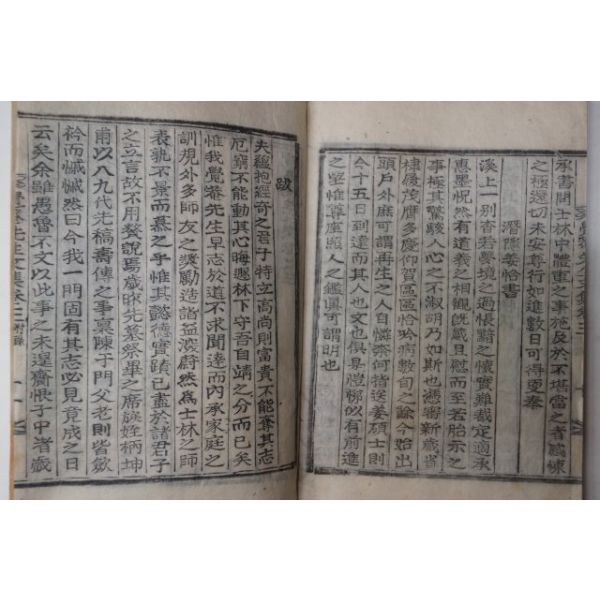 承書問士林中體重之事施及於不堪當之者感悚
之極還切未安尊行如進數日可得更奏
潛隱姜恰書
溪上一別杳若夢境之過悵黯之懷實難裁定適承
惠墨怳然有道義之相觀旣感且慰而至若胎示之
事極其驚駭人心之不淑明乃如斯也憑審新歲省
棣履茂膺多慶仰賀區區恰吟病數旬之餘今始出
頭戶外庶可謂再生之人自憐奈何指送姜碩士則
今十五日到達而其人也文也俱是愷悌似以有前進
之望惟尊座照人之鑑眞可謂明也
跋
夫蘊抱經奇之君子特立高尚則富貴不能奪其志
厄窮不能動其心晦遯林下守吾自靖之分而已矣
惟我覺庵先生早志於道不求聞達而內承家庭之
訓規外多師友之獎勵造詣益深蔚然爲士林之師
表孰不景而慕之乎惟其懿德實蹟已盡於諸君子
之立言故不用贅說焉歲昳先墓祭畢之席族姪柄坤
甫以八九代先稿壽傳之事稟陳于門父老則皆斂
衿而慽慽然曰今我一門固有其志必見竟成之日
云矣余雖愚魯不文以此事之未遑齎恨于中者歲